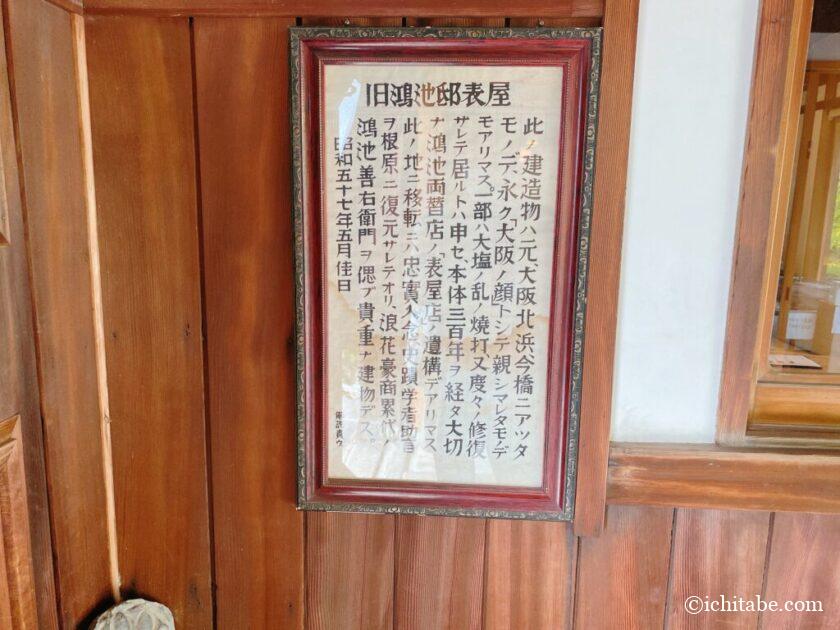 旧鴻池邸表屋
此ノ建造物ハ元、大阪北浜、今橋ニアツタ
モノデ、永ク「大阪ノ顔」トシテ親シマレタモノデ
モアリマス。一部ハ大塩ノ乱ノ焼打、又度々ノ修復
サレテ居ルトハ申セ、本体三百年ヲ経タ大切
ナ鴻池両替店ノ「表屋店」ノ遺構デアリマス
此ノ地ニ移転ニハ忠實入念、史蹟学者助言
ヲ根原ニ復元サレテオリ、浪花豪商累代ノ
鴻池善右衛門ヲ偲ブ貴重ナ建物デス。
昭和五十七年五月佳日
©ichitabe.com